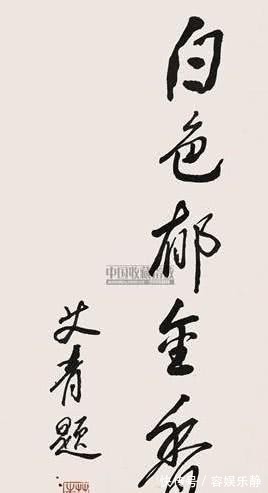 白色郁金香
艾青题
中国收藏拍卖
快传号/容娱乐静